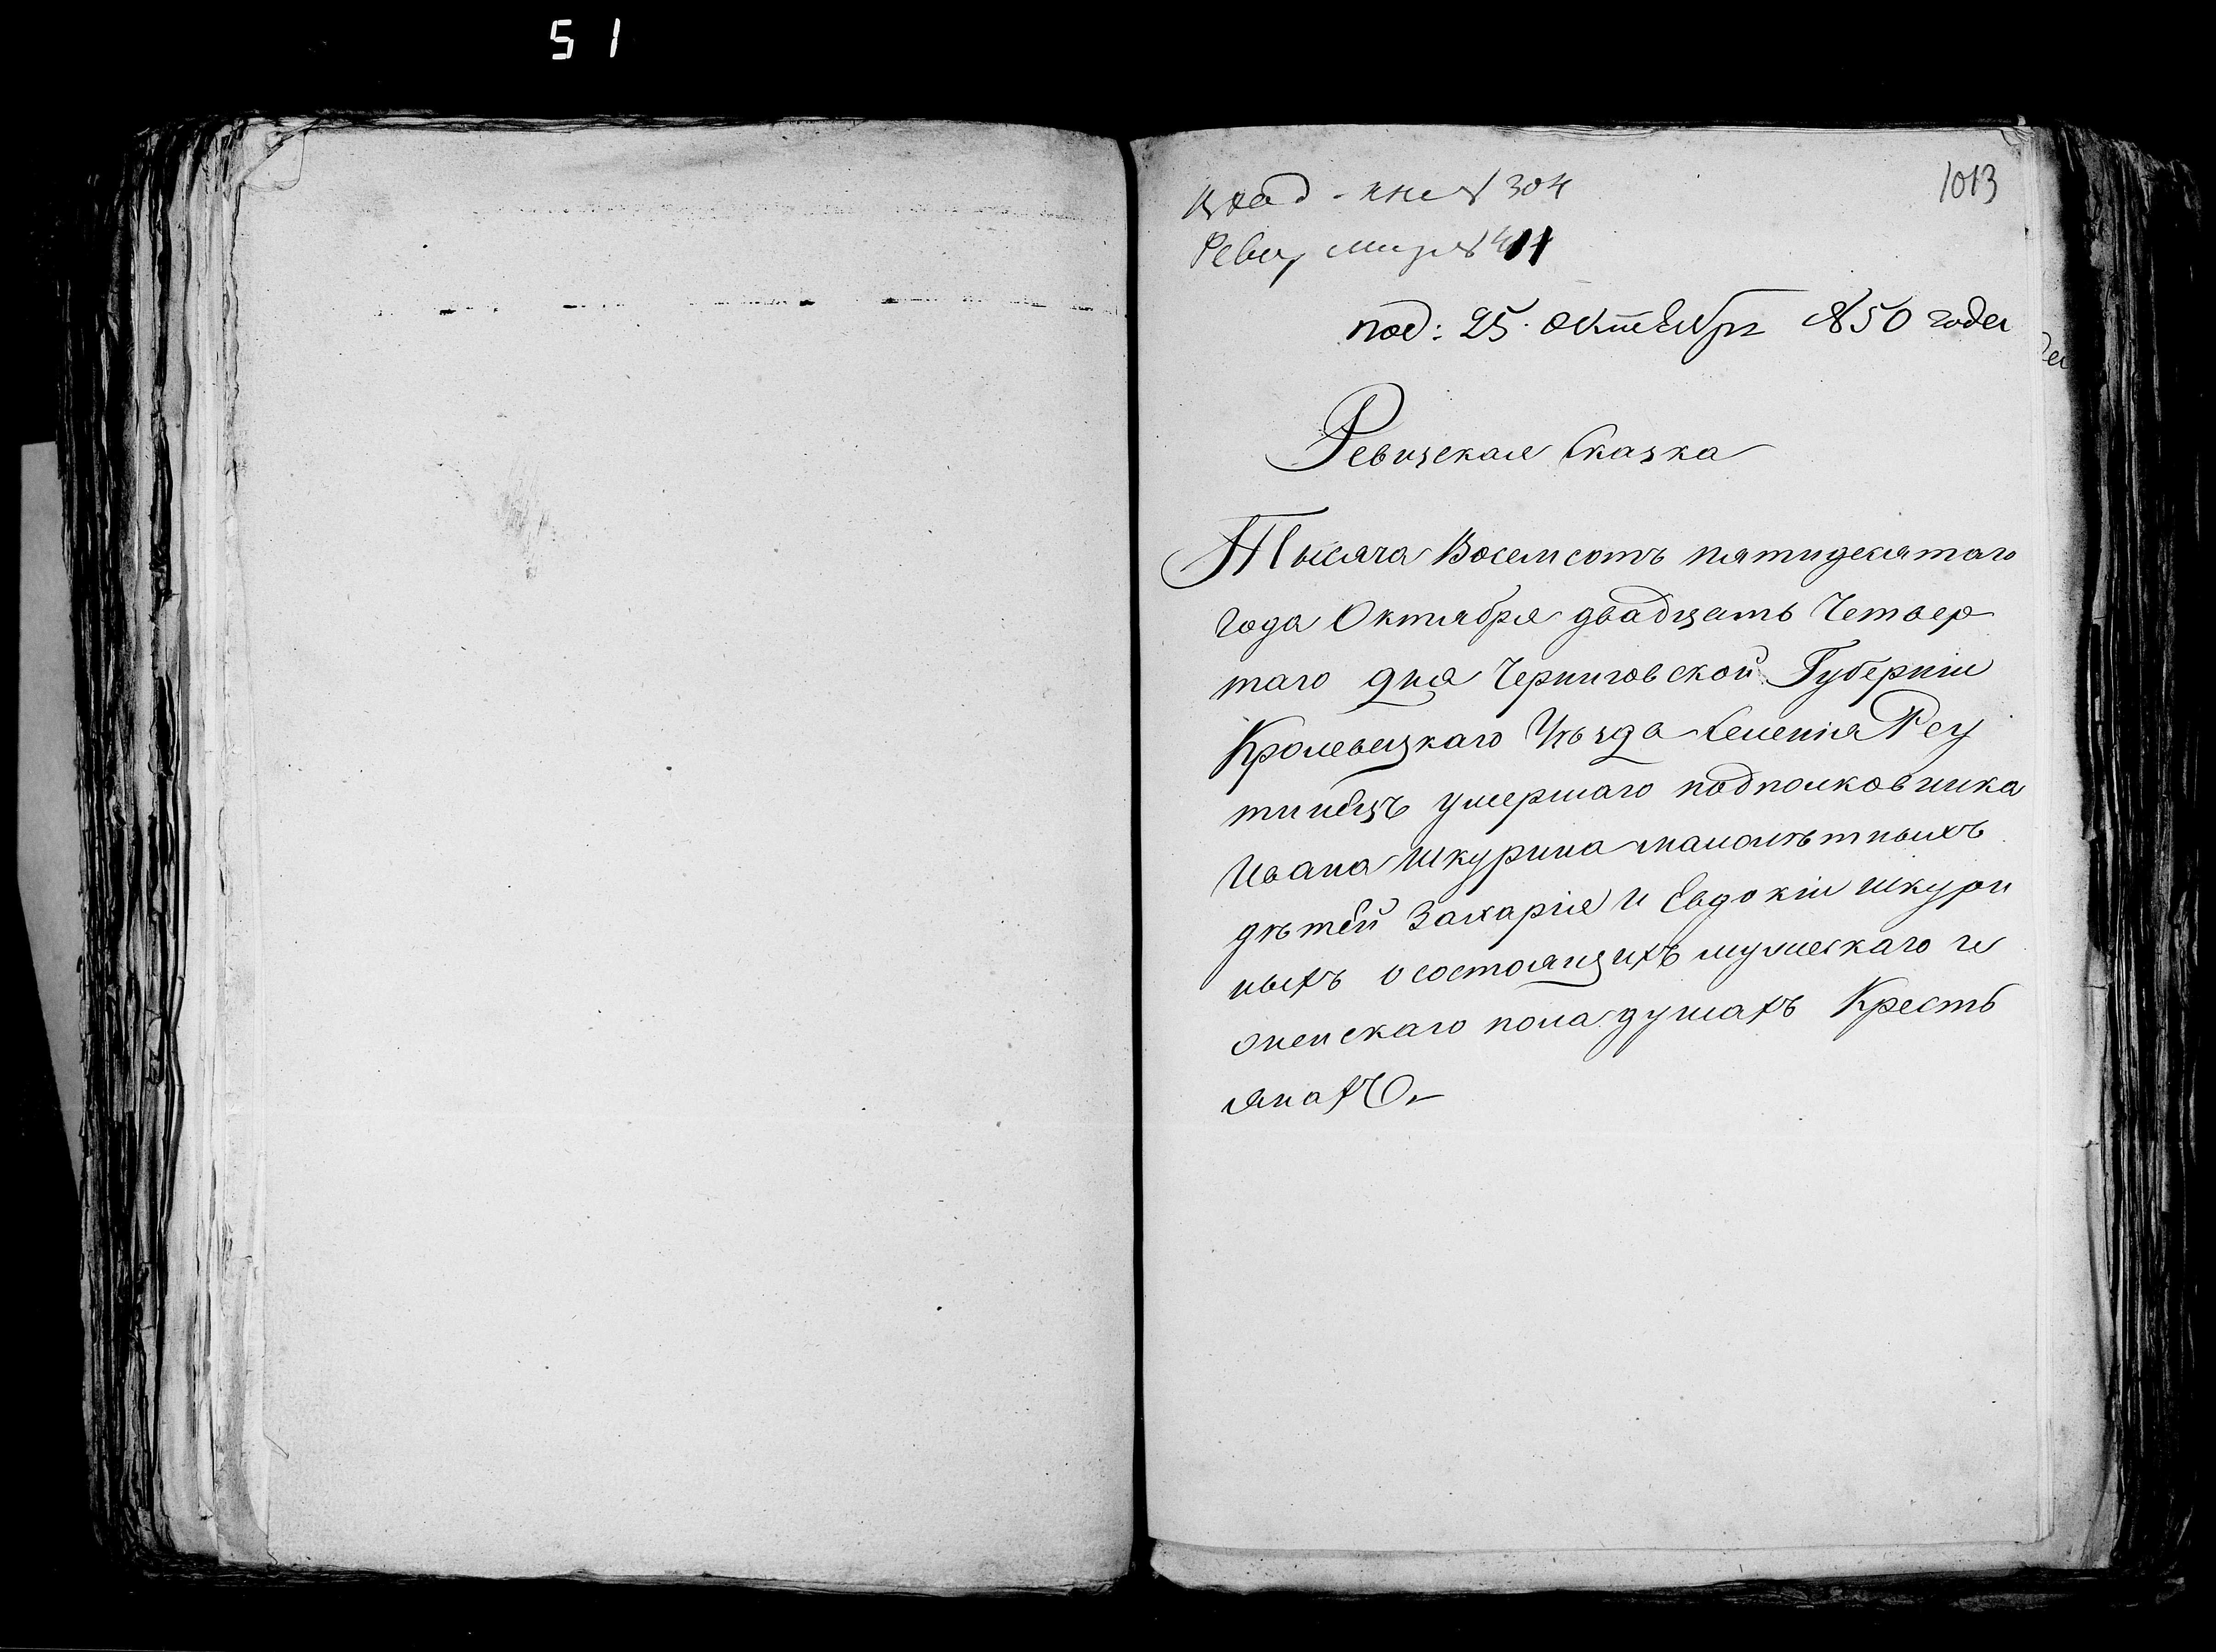 51
1013
Вход - № 304
под: 25 октября 1850 года
Ревизская Сказка
Тысяча Восемсотъ пятидесятаго
Года Октября двадцать Четвер
таго дня Черниговской Губерніи
Кролевецкаго Уѣзда Селенія Реу
тинецъ умершаго подполковника
Ивана Шкурина малолѣтныхъ
дѣтей Захарія и Евдокіи Шкури
ныхъ о состоящихъ мужескаго и
женскаго пола душахъ Кресть
янахъ.